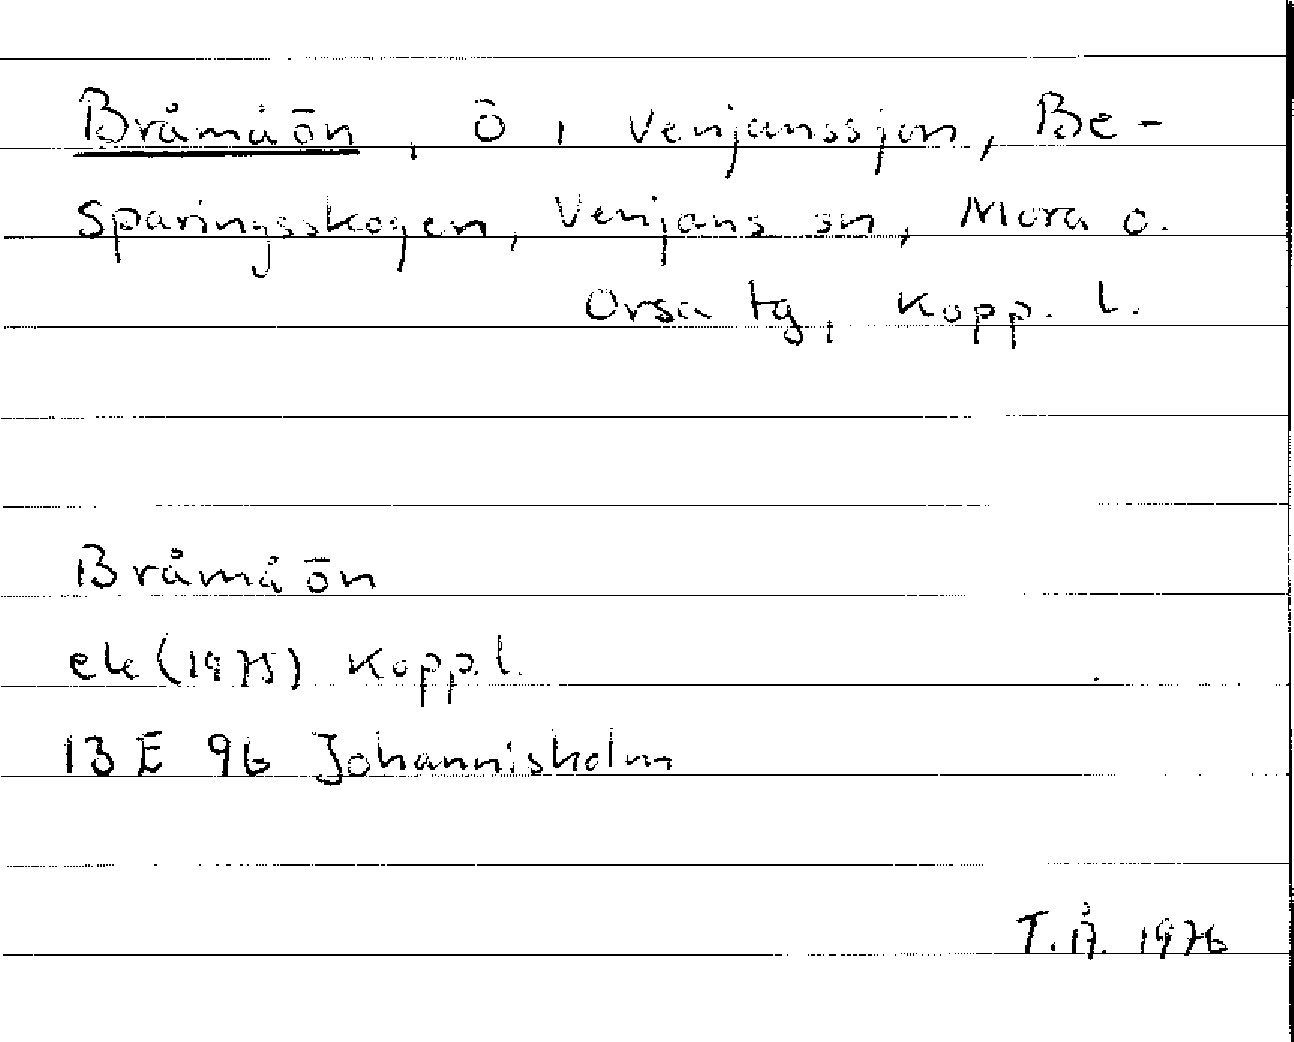 Bråmåön, ö i Venjanssjön, Be-
sparingsskogen, Venjans sn, Mora o.
Orsa tg, Kopp. l.
Bråmåön
ek (1975) Kopp.l.
13 E 9b Johannisholm
T.Å. 1976